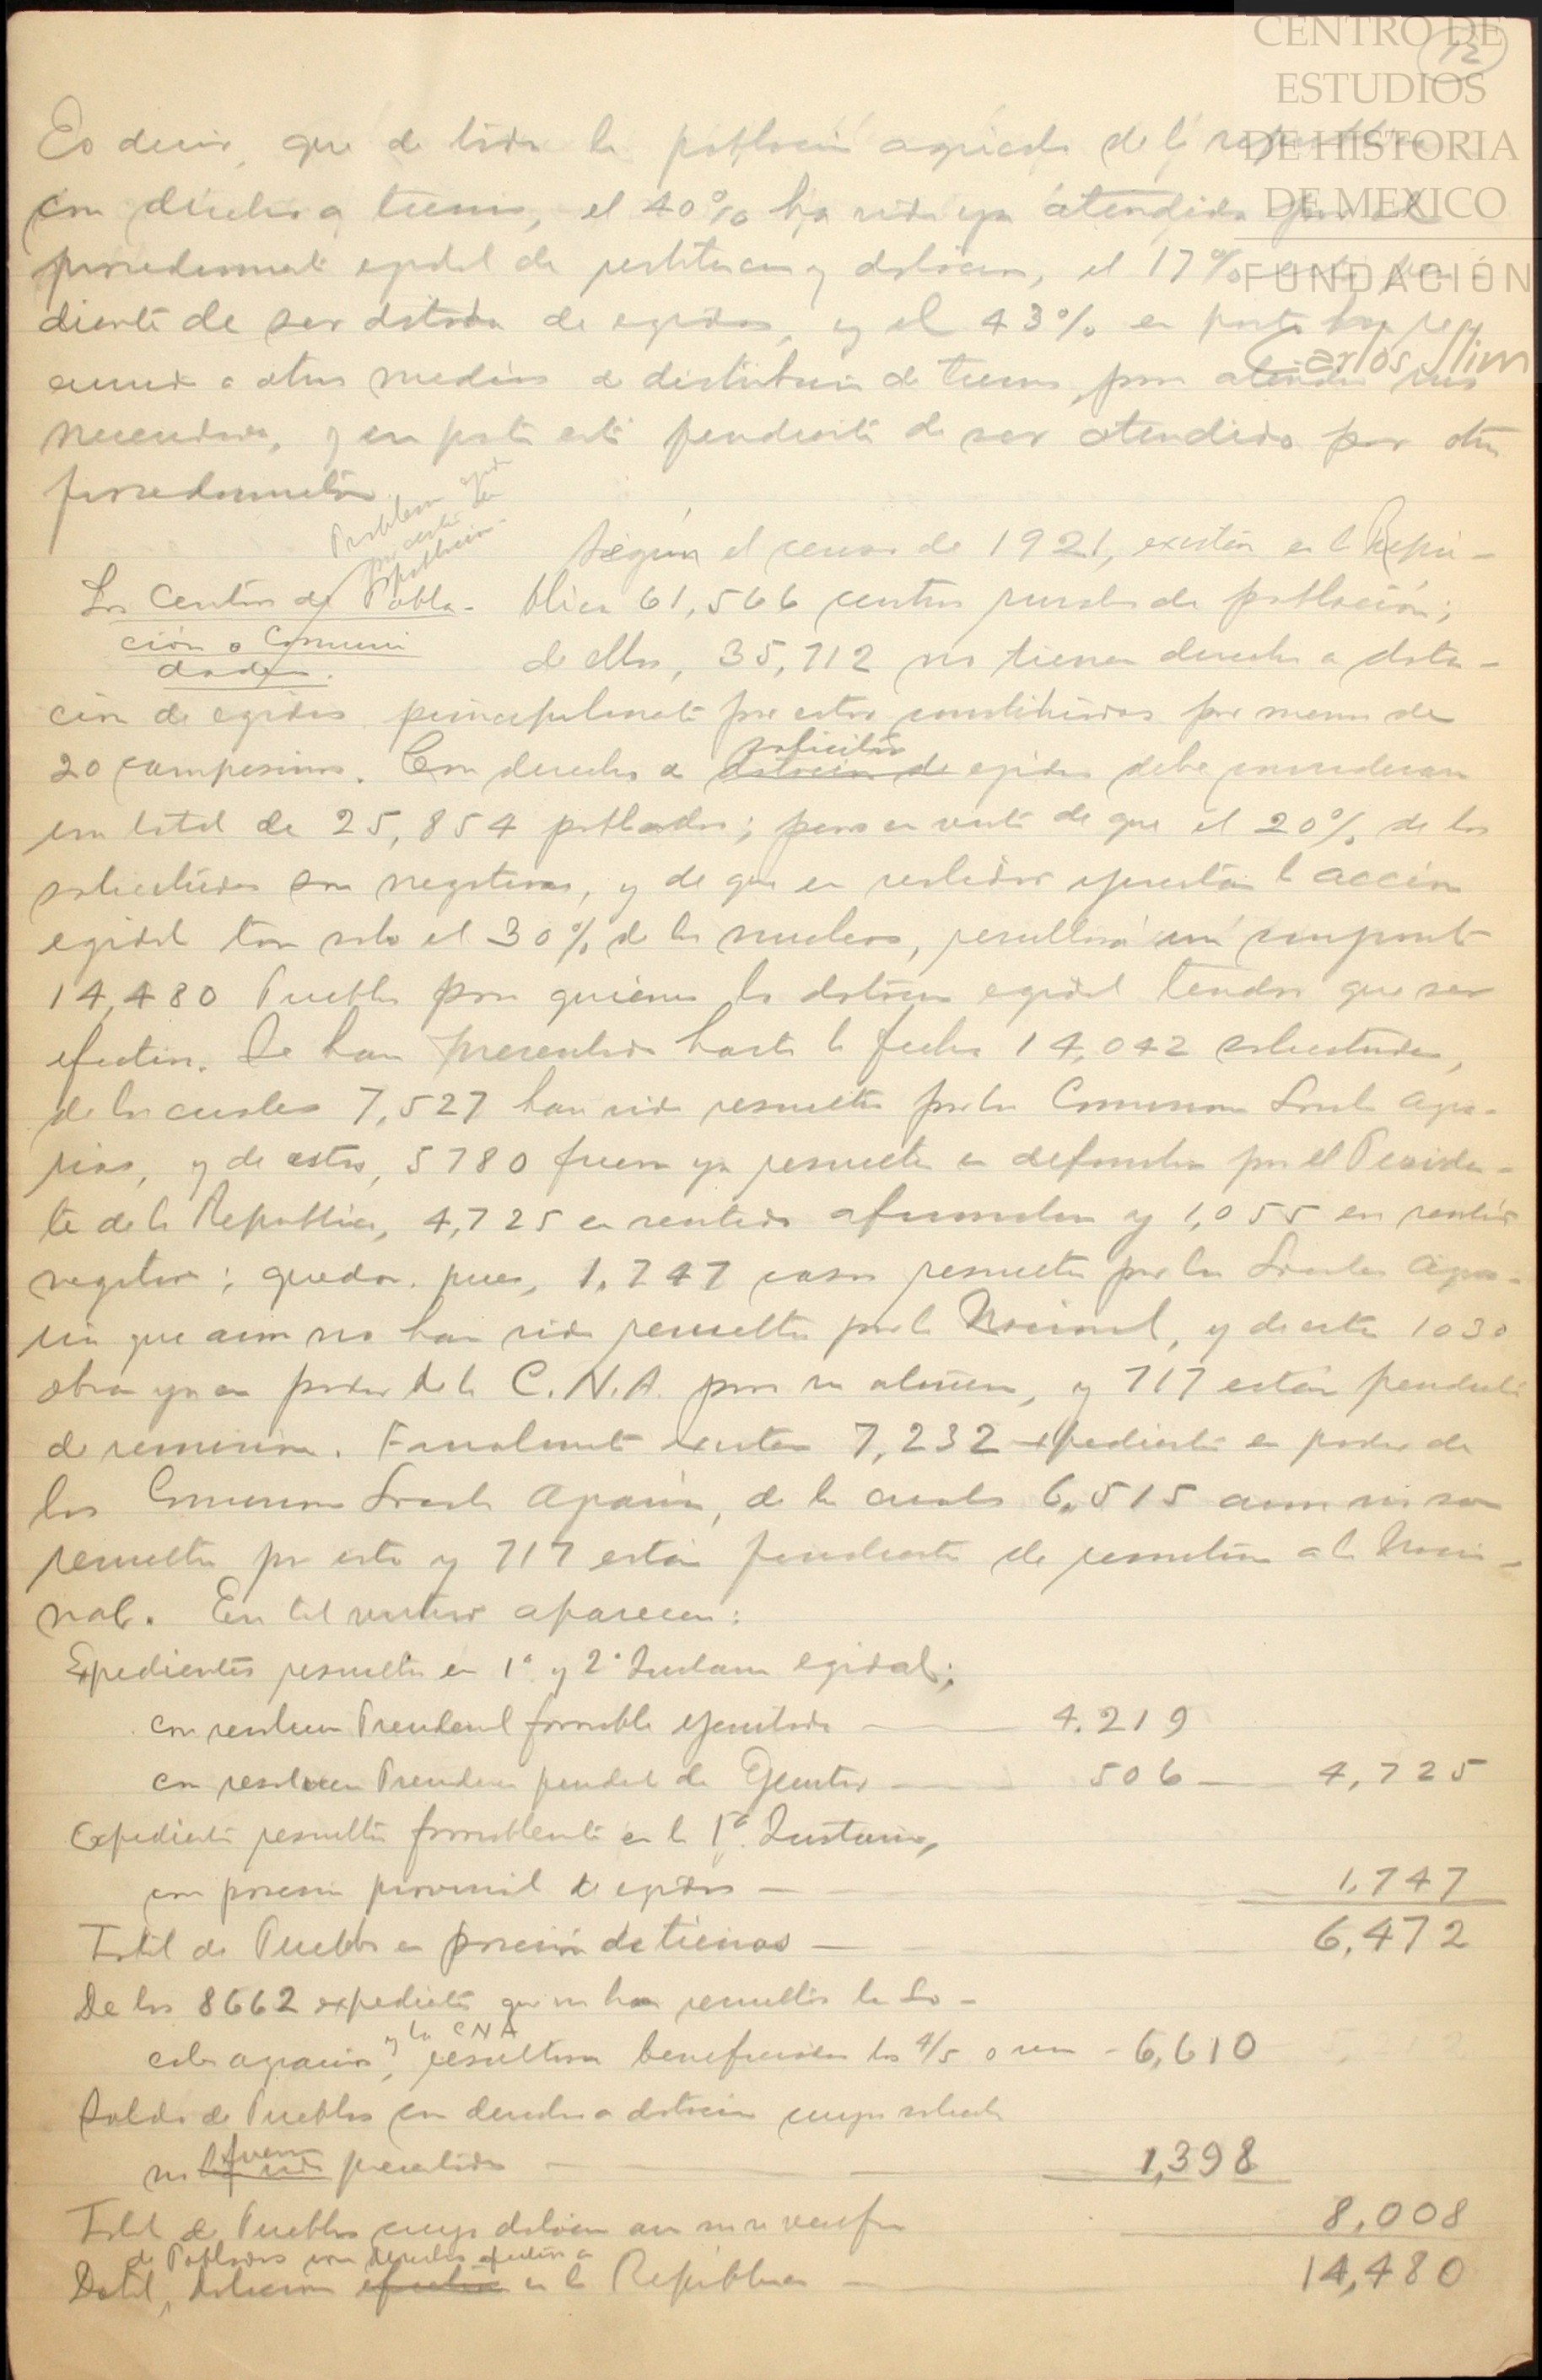 CENTRO DE
ESTUDIOS
DE HISTORIA
DE MEXICO
FUNDACIÓN
Carlos Slim
12
Es decir, que de toda la población agrícola de la república
con derecho a tierras, el 40% ha sido ya atendida por el
procedimiento egidal de restitucion y dotacion, el 17% está pen-
diente de ser dotada de egidos, y el 43% en parte ha re-
currido a otros medios de distribucion de tierras, para atender sus
necesidades, y en parte está pendiente de ser atendido por otros
procedimientos.
Problema
población
Según el censo de 1921, existen en la Repú-
Los Centros de Pobla-
blica 61,566 centros rurales de población;
ción o Comuni
dades.
de ellos, 35,712 no tienen derecho a dota-
ción de egidos principalmente por estar constituidos por menos de
20 campesinos. Con derecho a dotacion de solicitar egidos debe considerarse
un total de 25,854 poblados; pero en vista de que el 20% de las
solicitudes son negativas, y de que en realidad ejercitan la acción
egidal tan solo el 30% de los nucleos, resultará
14,480 Pueblos para quienes la dotacion egidal tendra que ser
efectiva. Se han presentado hasta la fecha 14,042 solicitudes,
de las cuales 7,527 han sido resueltas por las Comisiones Locales Agra-
rias, y de estas, 5780 fueron ya resueltas en definitiva por el Presiden-
te de la República, 4,725 en sentido afirmativo y 1,055 en sentido
negativo; quedan, pues, 1,747 casos resueltos por las Locales Agra-
rias que aun no han sido resueltos por la Nacional, y de estos 1030
obran ya en poder de la C.N.A. para su , y 717 están pendientes
de remision. Finalmente existen 7,232 expedientes en poder de
las Comisiones Locales Agrarias, de los cuales 6,515 aun no son
resueltos por estas y 717 están pendientes de remitirse a la Nacio-
nal. En tal virtud aparecen:
Expedientes resueltos en 1ª y 2ª Instancia egidal;
con resolucion Presidencial favorable ejecutada — 4.219
con resolucion Presidencial pendiente de Ejecutar — 506 — 4,725
Expedientes resueltos favorablemente en la 1ª Instancia,
con posesion provisional de egidos — 1,747
Total de Pueblos en posesión de tierras — 6,472
De los 8662 expedientes que no han resuelto las Lo-
cales agrarias y la CNA, resultaran beneficiados los 4/5 o sean - 6,610
Saldo de Pueblos con derecho a dotacion cuyas solicitudes
no fueron presentadas — 1,398
Total de Pueblos cuya dotacion aun no se verifica 8,008
Total de Poblados con derecho efectivo a dotacion efectiva en la República — 14,480